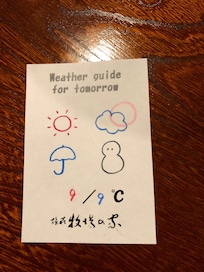 Weather guide
for tomorrow
9 / 9 ℃
牧場の家